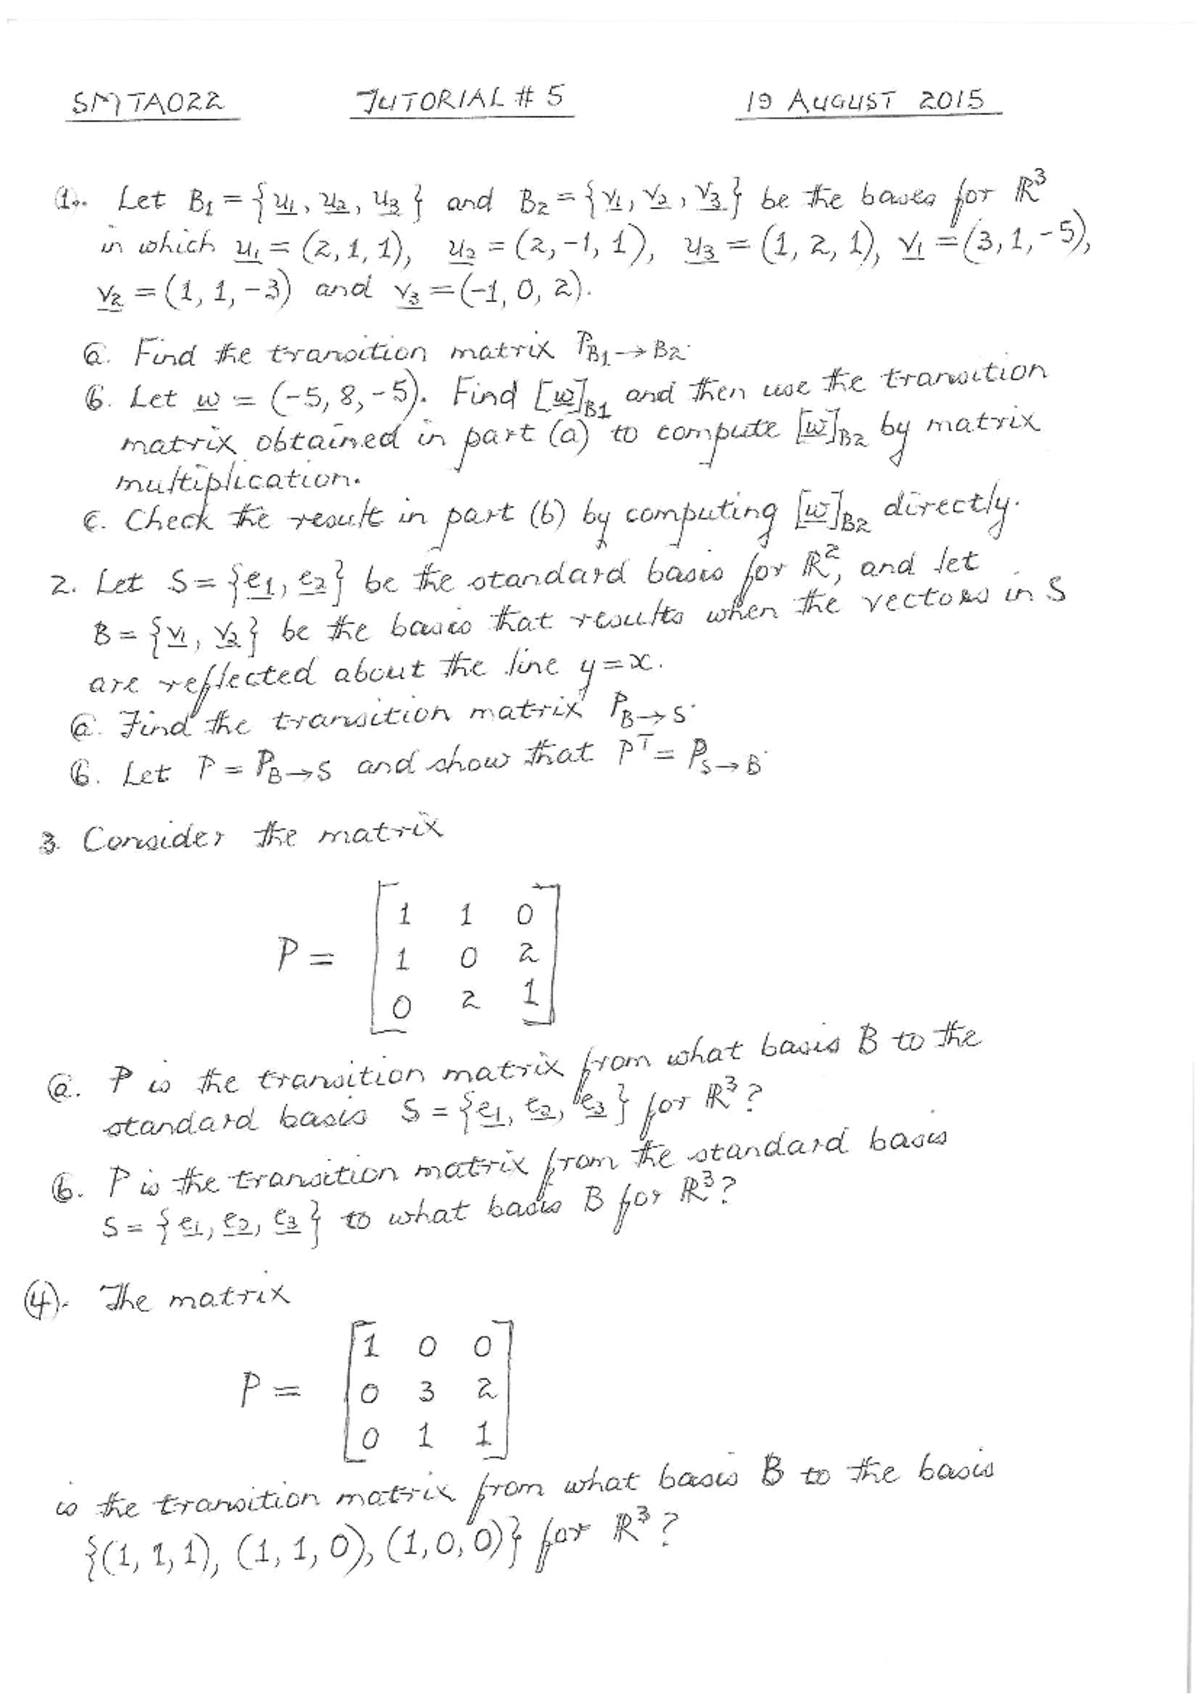 SMTA022 TUTORIAL # 5 19 AUGUST 2015
1. Let B1 = {u1, u2, u3} and B2 = {v1, v2, v3} be the bases for ℝ³
in which u1 = (2, 1, 1), u2 = (2, -1, 1), u3 = (1, 2, 1), v1 = (3, 1, -5),
v2 = (1, 1, -3) and v3 = (-1, 0, 2).
a. Find the transition matrix P_B1→B2.
b. Let w = (-5, 8, -5). Find [w]_B1 and then use the transition
matrix obtained in part (a) to compute [w]_B2 by matrix
multiplication.
c. Check the result in part (b) by computing [w]_B2 directly.
2. Let S = {e1, e2} be the standard basis for ℝ², and let
B = {v1, v2} be the basis that results when the vectors in S
are reflected about the line y = x.
a. Find the transition matrix P_B→S.
b. Let P = P_B→S and show that P^T = P_S→B.
3. Consider the matrix
1 1 0
P = 1 0 2
0 2 1
a. P is the transition matrix from what basis B to the
standard basis S = {e1, e2, e3} for ℝ³?
b. P is the transition matrix from the standard basis
S = {e1, e2, e3} to what basis B for ℝ³?
(4). The matrix
1 0 0
P = 0 3 2
0 1 1
is the transition matrix from what basis B to the basis
{(1, 1, 1), (1, 1, 0), (1, 0, 0)} for ℝ³?